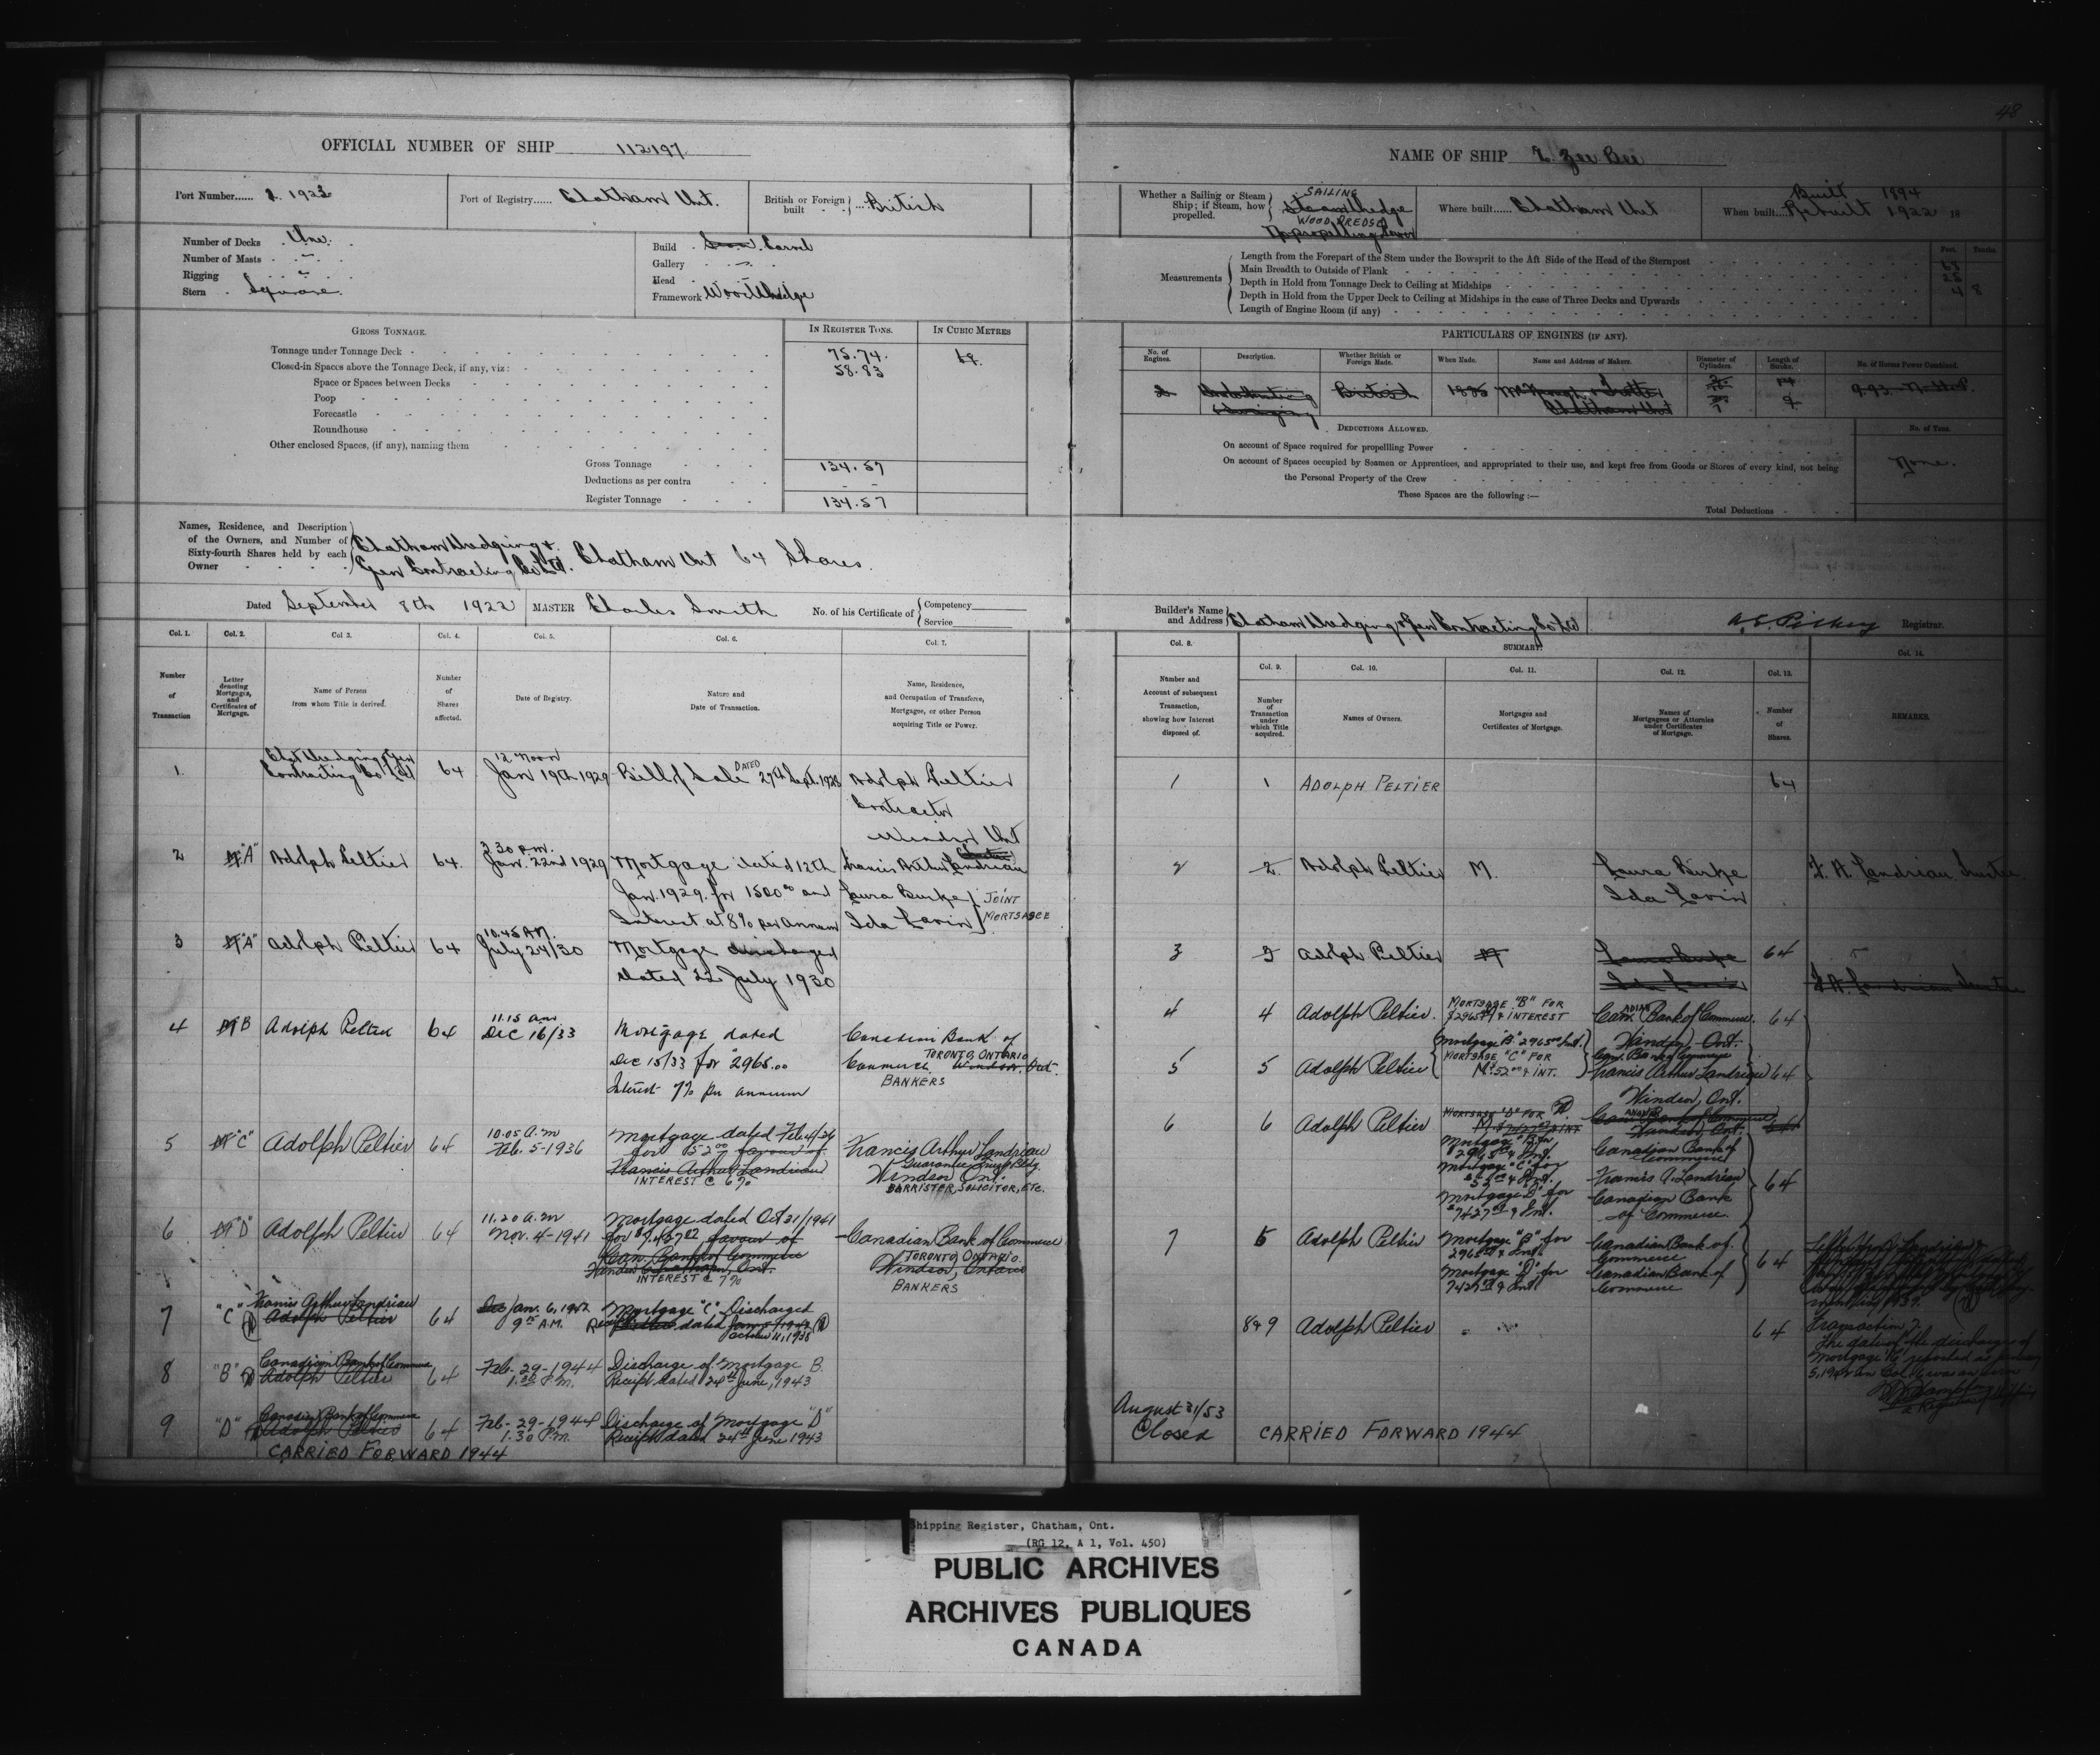 48
OFFICIAL NUMBER OF SHIP 112197
Port Number 1922
Port of Registry Chatham Ont.
British or Foreign built British
Number of Decks One.
Number of Masts -
Rigging -
Stern Square.
Build Carvel
Gallery -
Head -
Framework Wood
GROSS TONNAGE.
IN REGISTER TONS.
IN CUBIC METRES
Tonnage under Tonnage Deck 75.74.
Closed-in Spaces above the Tonnage Deck, if any, viz: 58.83
Space or Spaces between Decks
Poop
Forecastle
Roundhouse
Other enclosed Spaces, (if any), naming them
Gross Tonnage 134.57
Deductions as per contra - -
Register Tonnage 134.57
Names, Residence, and Description
of the Owners, and Number of
Sixty-fourth Shares held by each
Owner
Chatham Dredging &
Gen Contracting Co Ltd. Chatham Ont 64 Shares.
Dated September 8th 1922 MASTER Charles Smith No. of his Certificate of Competency
Service
Col. 1. Col. 2. Col 3. Col. 4. Col. 5. Col. 6. Col. 7.
Number of Transaction
Letter denoting Mortgages, and Certificates of Mortgage.
Name of Person from whom Title is derived.
Number of Shares affected.
Date of Registry.
Nature and Date of Transaction.
Name, Residence, and Occupation of Transferee, Mortgagee, or other Person acquiring Title or Power.
1. Chat Dredging & Gen
Contracting Co Ltd 64 12 noon
Jan 19th 1929 Bill of Sale DATED 27th Sept. 1928 Adolph Peltier
Contractor
Windsor Ont
2 "A" Adolph Peltier 64. 2.30 p.m.
Jan. 22nd 1929 Mortgage dated 12th Francis Arthur Landriau
Jan. 1929. for 1500.00 and Laura Burke JOINT
Interest at 8% per annum Ida Lavin MORTGAGEE
3 "A" Adolph Peltier 64 10.45 A.M.
July 24/30 Mortgage discharged
Dated 22 July 1930
4 B Adolph Peltier 64 11.15 a.m
Dec 16/33 Mortgage dated Canadian Bank of
Dec 15/33 for $2965.00 Commerce TORONTO, ONTARIO
Windsor. Ont.
Interest 7% per annum BANKERS
5 "C" Adolph Peltier 64 10.05 a.m
Feb. 5-1936 Mortgage dated Feb 4/36
for $52.00 favour of
Francis Arthur Landriau
INTEREST @ 6%
Francis Arthur Landriau
Guarantee Trust Bldg.
Windsor Ont.
BARRISTER, SOLICITOR, ETC.
6 "D" Adolph Peltier 64 11.20 a.m
Nov. 4-1941 Mortgage dated Oct 31/1941
favour of
Can Bank of Commerce
INTEREST @ 7%
Canadian Bank of Commerce
TORONTO, ONTARIO.
Windsor, Ontario
BANKERS
7 "C" Francis Arthur Landriau
Adolph Peltier 64 Dec Jan. 6, 1942
9 A.M. Mortgage "C" Discharged
dated
October 11, 1938
8 "B" Canadian Bank of Commerce
Adolph Peltier 64 Feb. 29-1944
1.30 P.M. Discharge of Mortgage B.
Receipt dated 24th June, 1943
9 "D" Canadian Bank of Commerce
Adolph Peltier 64 Feb. 29-1944
1.30 P.M. Discharge of Mortgage "D"
Receipt dated 24th June 1943
CARRIED FORWARD 1944
NAME OF SHIP Zee Bee
Whether a Sailing or Steam Ship; if Steam, how propelled.
SAILING
Steam Dredge
WOOD DREDGE
No propelling Power
Where built Chatham Ont
When built Built 1894
Rebuilt 1922 18
Measurements
Feet. Tenths.
Length from the Forepart of the Stem under the Bowsprit to the Aft Side of the Head of the Sternpost
Main Breadth to Outside of Plank
Depth in Hold from Tonnage Deck to Ceiling at Midships 4 8
Depth in Hold from the Upper Deck to Ceiling at Midships in the case of Three Decks and Upwards
Length of Engine Room (if any)
PARTICULARS OF ENGINES (IF ANY).
No. of Engines. Description. Whether British or Foreign Made. When Made. Name and Address of Makers. Diameter of Cylinders. Length of Stroke. No. of Horses Power Combined.
British
Chatham Ont
DEDUCTIONS ALLOWED.
No. of Tons.
On account of Space required for propelling Power
On account of Spaces occupied by Seamen or Apprentices, and appropriated to their use, and kept free from Goods or Stores of every kind, not being
the Personal Property of the Crew
None.
These Spaces are the following :—
Total Deductions
Builder's Name and Address Chatham Dredging & Gen Contracting Co Ltd
Registrar.
SUMMARY.
Col. 8. Col. 9. Col. 10. Col. 11. Col. 12. Col. 13. Col. 14.
Number and Account of subsequent Transaction, showing how Interest disposed of.
Number of Transaction under which Title acquired.
Names of Owners.
Mortgages and Certificates of Mortgage.
Names of Mortgagees or Attornies under Certificates of Mortgage.
Number of Shares.
REMARKS.
1 1 ADOLPH PELTIER 64
2 2 Adolph Peltier M. Laura Burke
Ida Lavin
F. A. Landriau Trustee
3 2 Adolph Peltier M Laura Burke 64
Ida Lavin
F. A. Landriau Trustee
4 4 Adolph Peltier. MORTGAGE "B" FOR
$2965.00 & INTEREST Canadian Bank of Commerce. 64
Windsor, Ont.
5 5 Adolph Peltier Mortgage B. 2965.00 & Int.
MORTGAGE "C" FOR
52.00 & INT. Can. Bank of Commerce
Francis Arthur Landriau 64
Windsor, Ont.
6 6 Adolph Peltier MORTGAGE "D" FOR
Windsor, Ont.
Mortgage "B" for
$2965.00 & Int. Canadian Bank of
Commerce
Mortgage "C" for
$52.00 & Int. Francis A. Landriau 64
Mortgage "D" for Canadian Bank
& Int. of Commerce
7 5 Adolph Peltier Mortgage "B" for
2965.00 & Int. Canadian Bank of
Commerce 64
Mortgage "D" for
& Int. Canadian Bank of
Commerce
8 & 9 Adolph Peltier 64
Transaction 7
The date of the discharge of
Mortgage "C" reported as January
5, 1942 in Col. 6 was an error
August 31/53
Closed CARRIED FORWARD 1944
Shipping Register, Chatham, Ont.
(RG 12, A 1, Vol. 450)
PUBLIC ARCHIVES
ARCHIVES PUBLIQUES
CANADA